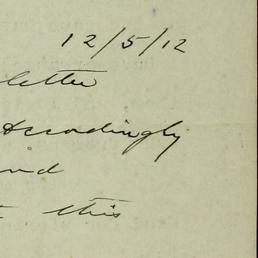 12/5/12
letter
Accordingly
and
this